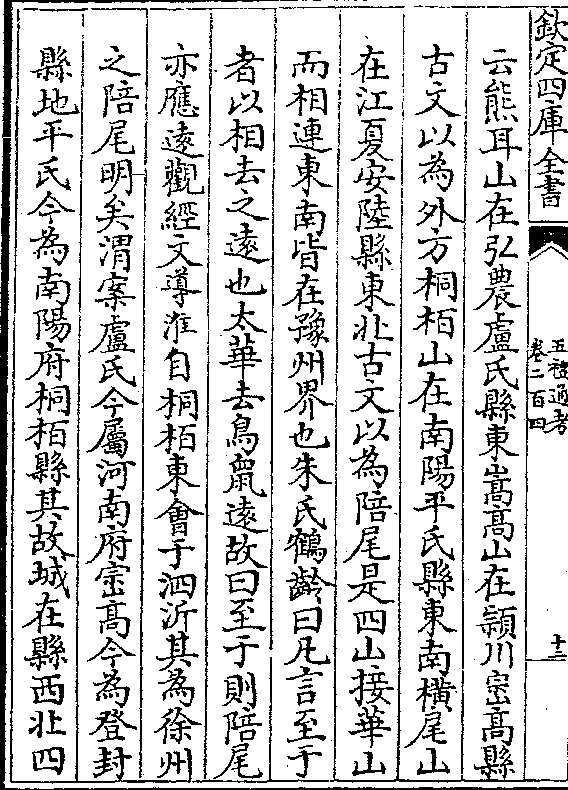 欽定四庫全書
五禮通考
卷二百四
十二
云熊耳山在弘農盧氏縣東嵩高山在潁川崈高縣
古文以為外方桐柏山在南陽平氏縣東南橫尾山
在江夏安陸縣東北古文以為陪尾是四山接華山
而相連東南皆在豫州界也朱氏鶴齡曰凡言至于
者以相去之遠也太華去鳥䑕遠故曰至于則陪尾
亦應遠觀經文導淮自桐柏東會于泗沂其為徐州
之陪尾明矣渭案盧氏今屬河南府崈高今為登封
縣地平氏今為南陽府桐栢縣其故城在縣西北四